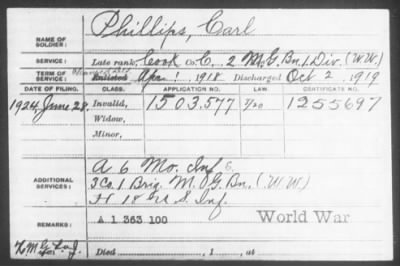 Phillips, Carl
NAME OF
SOLDIER:
SERVICE:
Late rank, Cook Co. C, 2 M.G. Bn. 1 Div. (W.W.)
TERM OF
SERVICE:
Enlisted Apr. 1 1918 Discharged Oct 2, 1919
DATE OF FILING. CLASS. APPLICATION NO. LAW. CERTIFICATE NO.
1924 June 28. Invalid, 1503,577 7/20 1255697
Widow,
Minor,
ADDITIONAL
SERVICES:
A 6 Mo. Inf
3 Co. 1 Brig. M.G. Bn. (W.W.)
H 18 U.S. Inf.
REMARKS:
A 1 363 100 World War
Died , 1 , at